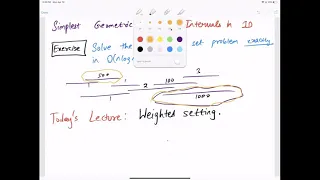 Simplest Geometric Intervals in 1D
Exercise Solve the set problem exactly
in O(nlog
500 3
100
2
1 1 1000
Today's Lecture: Weighted setting.